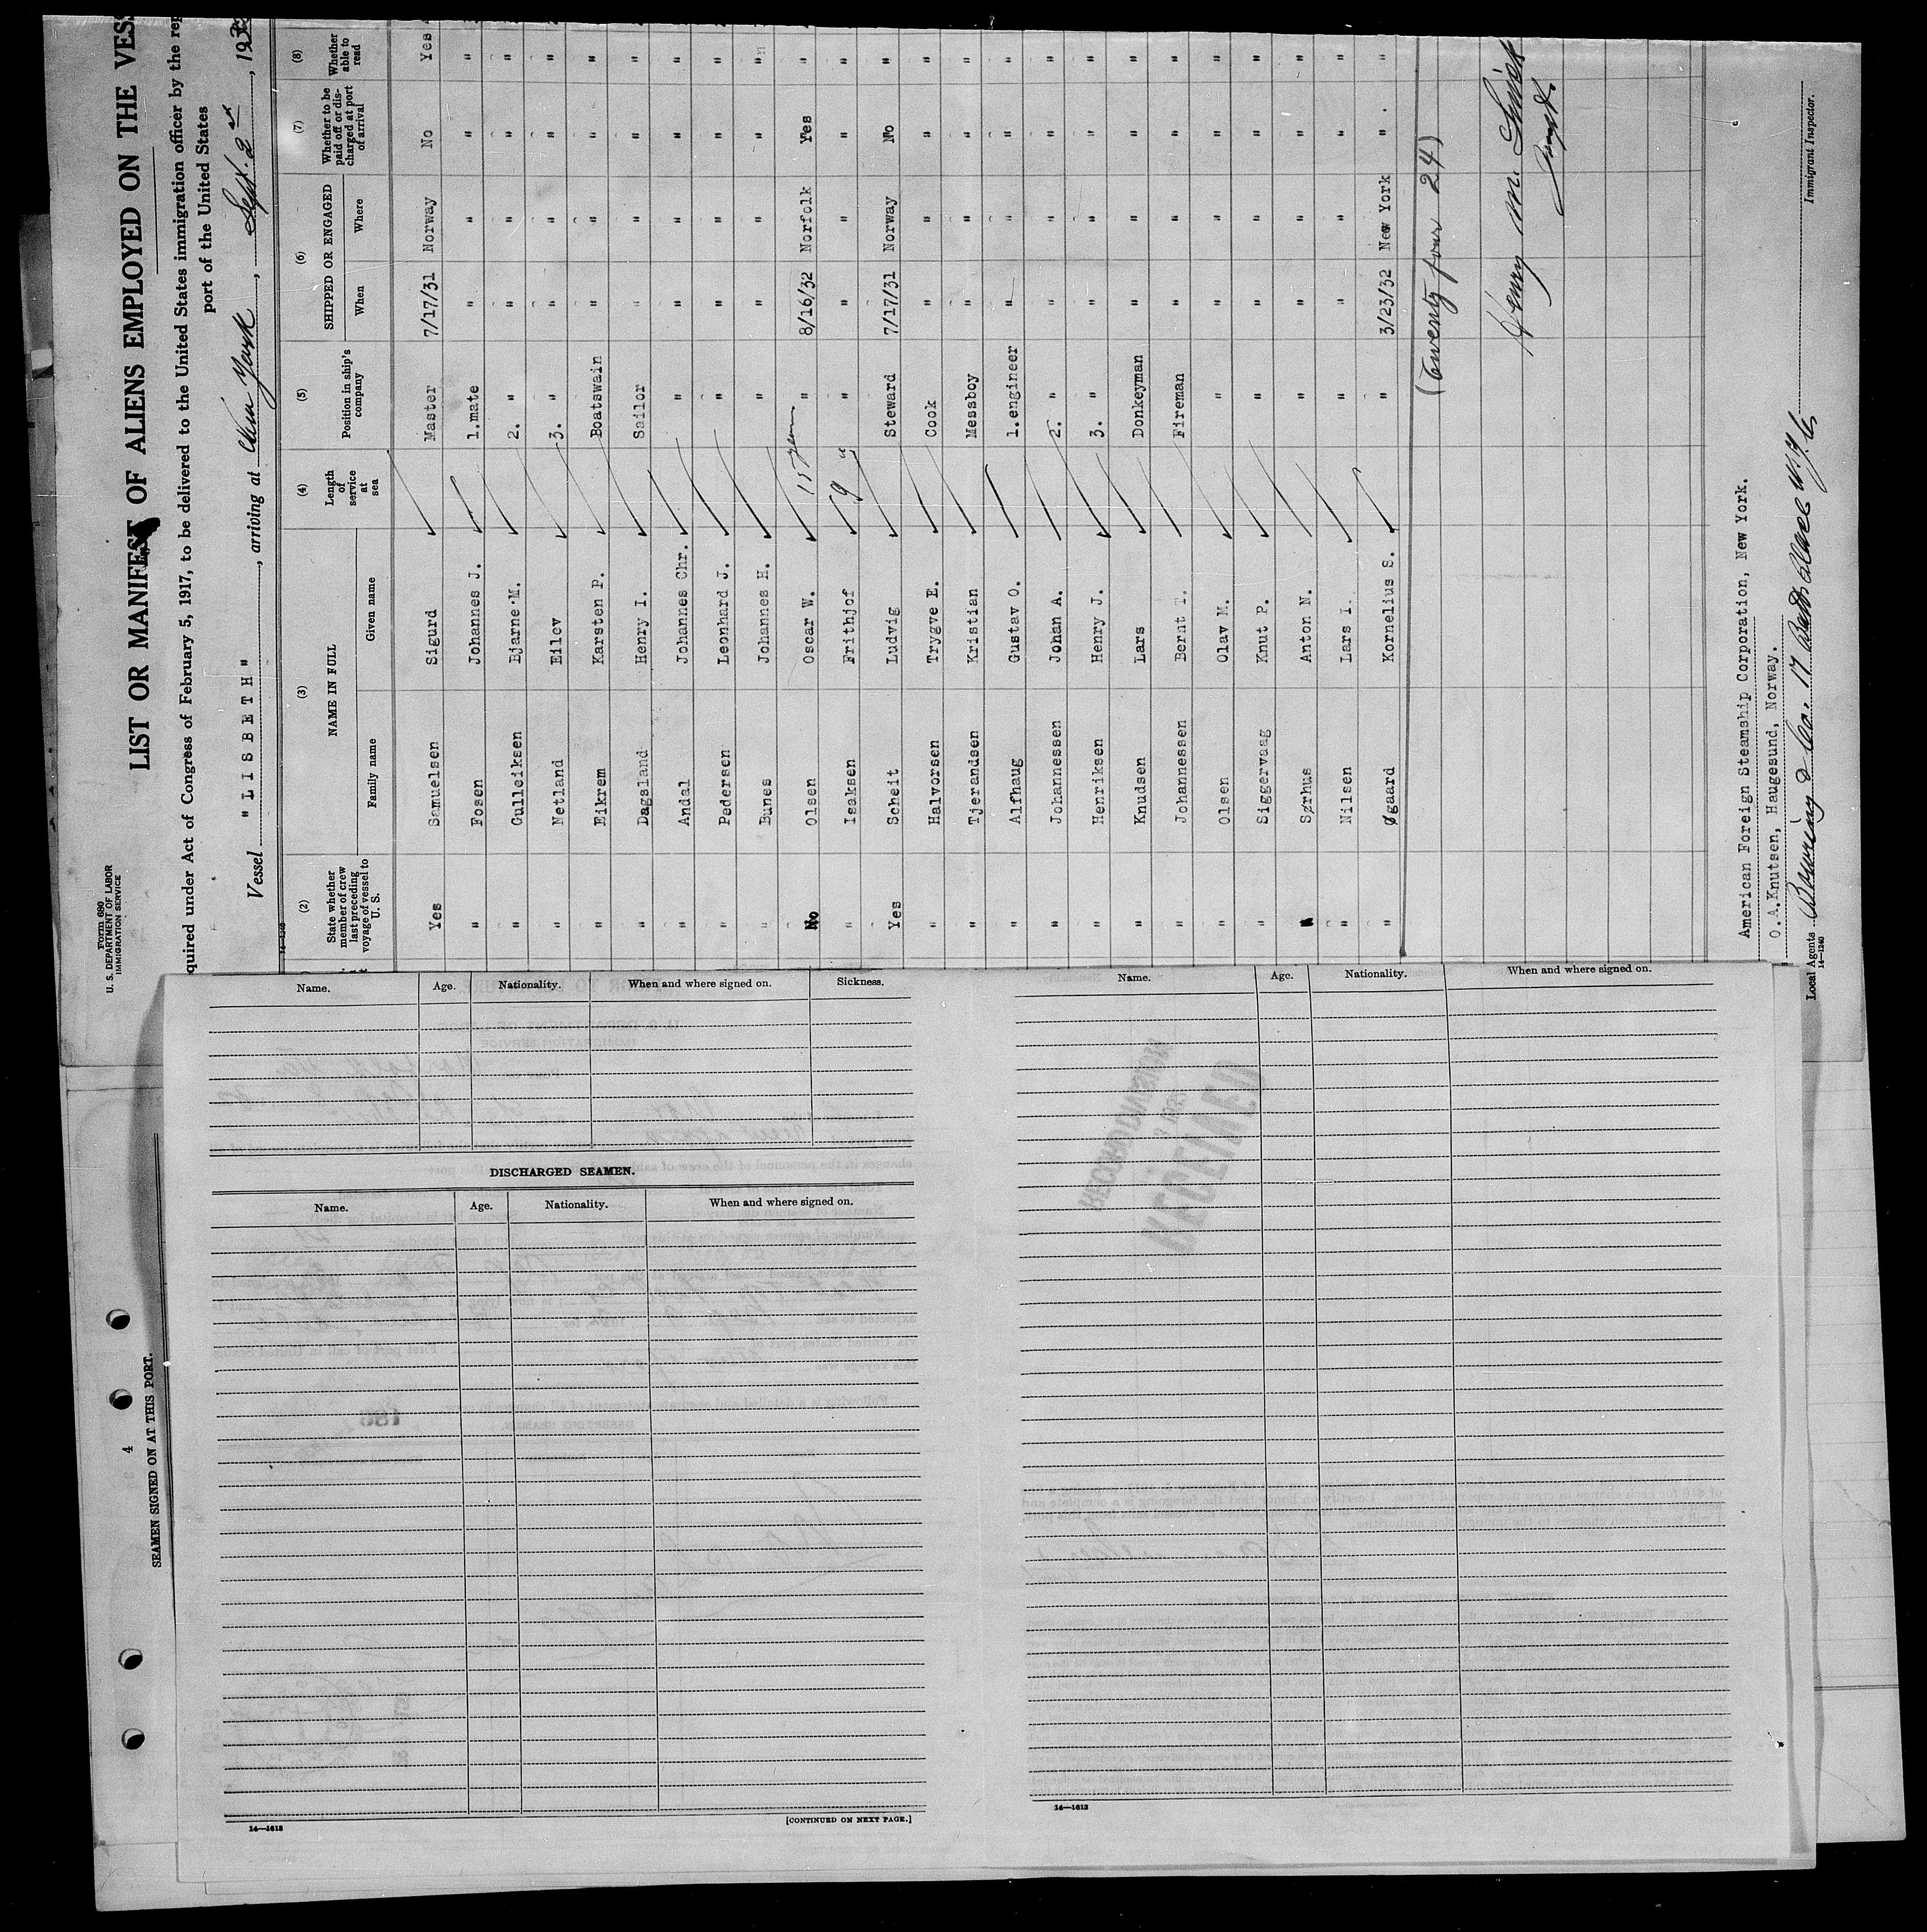 Form 680
U. S. DEPARTMENT OF LABOR
IMMIGRATION SERVICE
LIST OR MANIFEST OF ALIENS EMPLOYED ON THE VESS
quired under Act of Congress of February 5, 1917, to be delivered to the United States immigration officer by the rep
port of the United States
Vessel "LISBETH", arriving at New York, Sept. 2, 193
14—1240
(2) (3) (4) (5) (6) (7) (8)
State whether member of crew last preceding voyage of vessel to U. S.
NAME IN FULL
Family name Given name
Length of service at sea
Position in ship's company
SHIPPED OR ENGAGED
When Where
Whether to be paid off or discharged at port of arrival
Whether able to read
Yes Samuelsen Sigurd Master 7/17/31 Norway No Yes
" Fosen Johannes J. 1.mate " " " "
" Gulleiksen Bjarne M. 2. " " " " "
" Netland Eilev 3. " " " " "
" Eikrem Karsten P. Boatswain " " " "
" Dagsland Henry I. Sailor " " " "
" Andal Johannes Chr. " " " " "
" Pedersen Leonhard J. " " " " "
" Bunes Johannes H. " " " " "
No Olsen Oscar W. 15 years " 8/16/32 Norfolk Yes "
" Isaksen Frithjof 9 " " " " " "
Yes Scheit Ludvig Steward 7/17/31 Norway No "
" Halvorsen Trygve E. Cook " " " "
" Tjerandsen Kristian Messboy " " " "
" Alfhaug Gustav O. 1.engineer " " " "
" Johannessen Johan A. 2. " " " " "
" Henriksen Henry J. 3. " " " " "
" Knudsen Lars Donkeyman " " " "
" Johannessen Bernt T. Fireman " " " "
" Olsen Olav M. " " " " "
" Siggervaag Knut P. " " " " "
" Sørhus Anton N. " " " " "
" Nilsen Lars I. " " " " "
" Øgaard Kornelius S. " 3/23/32 New York " "
(Twenty four 24)
Henry M.
American Foreign Steamship Corporation, New York.
O.A.Knutsen, Haugesund, Norway.
Local Agents Bowring & Co. 17 Battery Place N.Y.C.
Immigrant Inspector.
14—1240
4
SEAMEN SIGNED ON AT THIS PORT.
Name. Age. Nationality. When and where signed on. Sickness.
DISCHARGED SEAMEN.
Name. Age. Nationality. When and where signed on.
14—1613
[CONTINUED ON NEXT PAGE.]
Name. Age. Nationality. When and where signed on.
14—1613